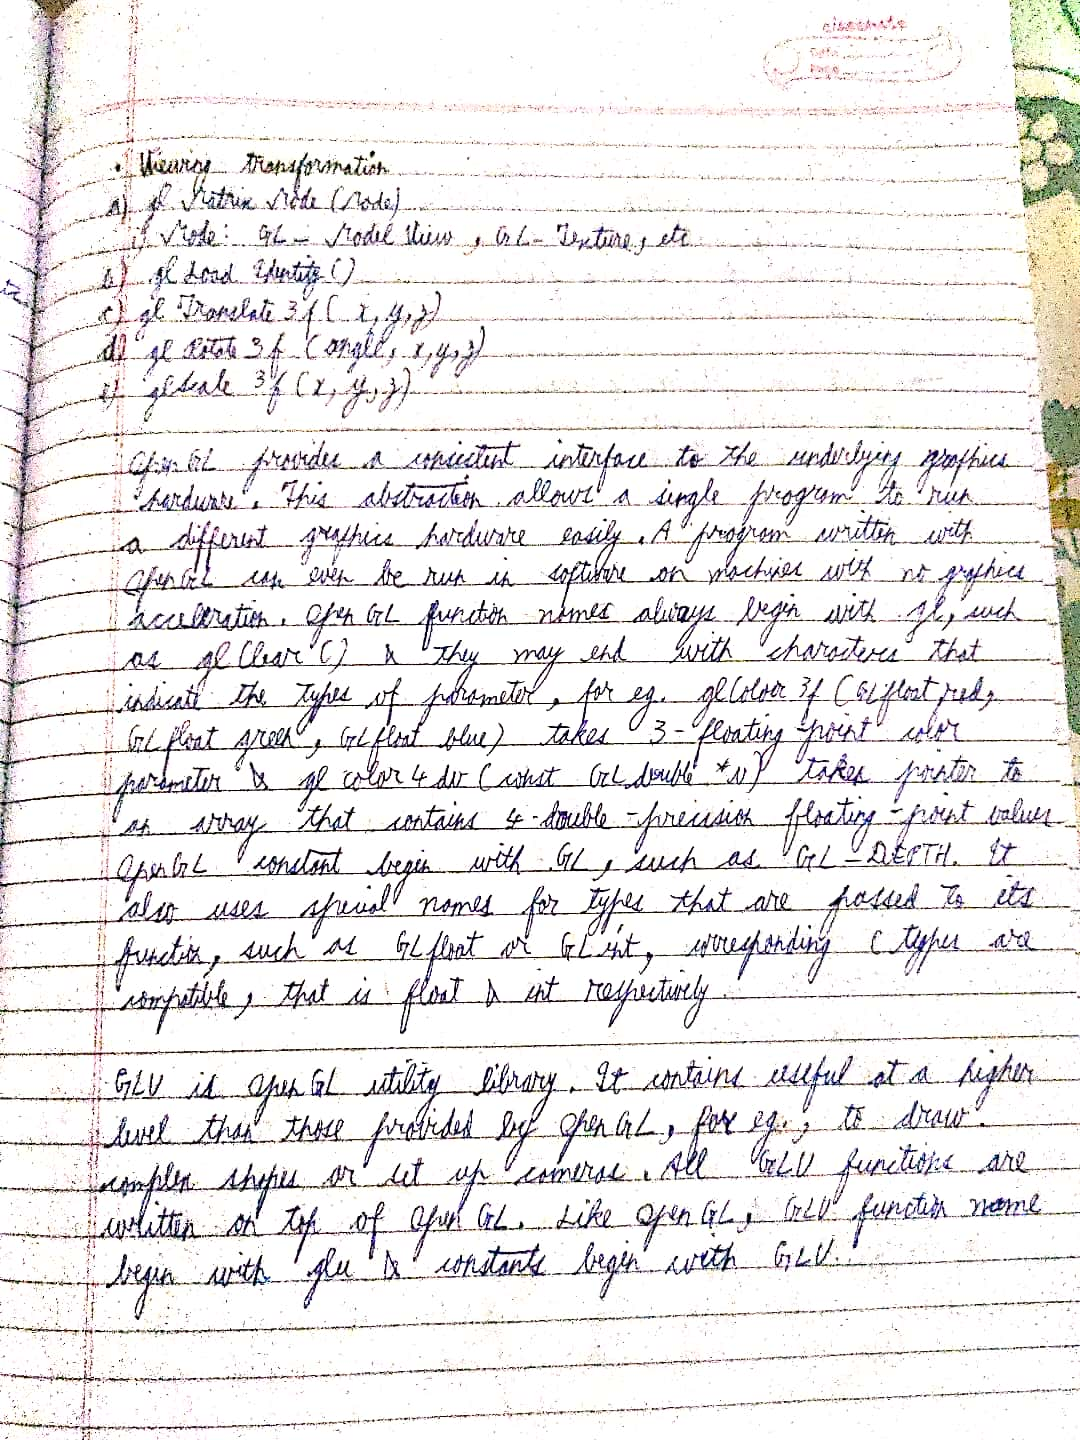 • Viewing transformation
a) gl Matrix Mode (Mode)
i) Mode: GL - Model View, GL - Texture, etc
b) gl Load Identity ()
c) gl Translate 3f ( x, y, z)
d) gl Rotate 3f (angle, x, y, z)
e) gl Scale 3f (x, y, z)
Open GL provides a consistent interface to the underlying graphics
hardware. This abstraction allows a single program to run
a different graphics hardware easily. A program written with
Open GL can even be run in software on machines with no graphics
acceleration. Open GL function names always begin with gl, such
as gl Clear () & they may end with characters that
indicate the types of parameter, for eg. gl Colour 3f (GL float red,
GL float green, GL float blue) takes 3 - floating - point color
parameter & gl color 4 dv (const GL double *v) takes pointer to
an array that contains 4 - double - precision floating - point values
Open GL constant begin with GL, such as GL - DEPTH. It
also uses special names for types that are passed to its
function, such as GL float or GL int, corresponding C types are
compatible, that is float & int respectively.
GLU is Open GL utility library. It contains useful at a higher
level than those provided by Open GL, for eg., to draw
complex shapes or set up cameras. All GLU functions are
written on top of Open GL. Like Open GL, GLU function name
begin with glu & constants begin with GLU.